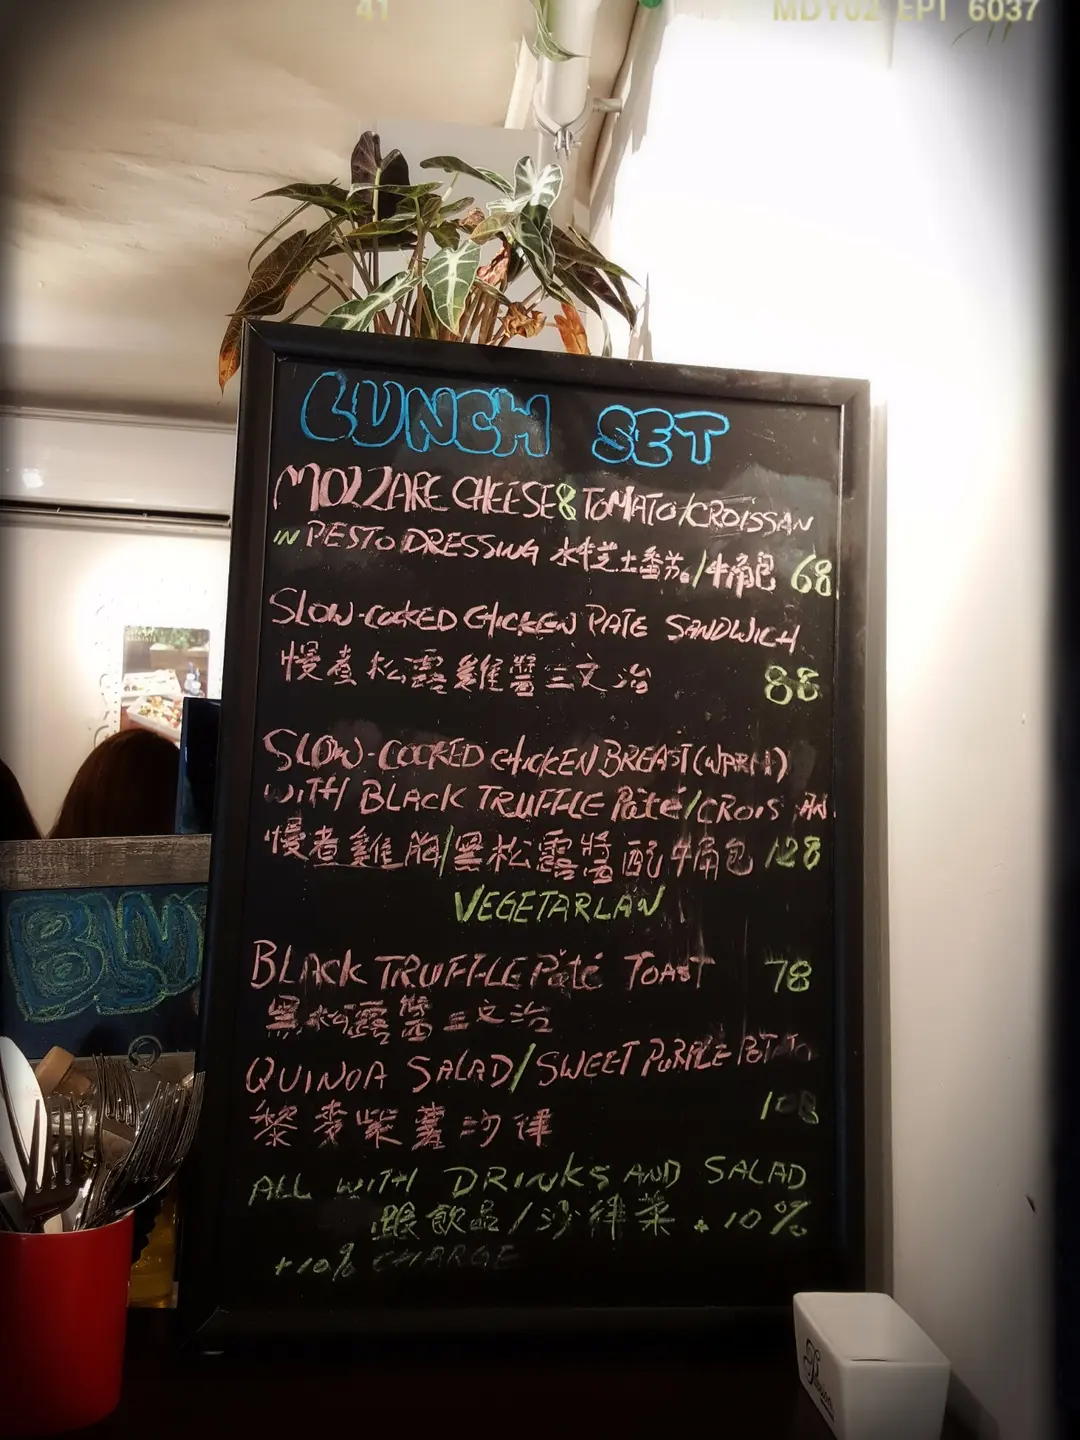 41 MDY02 EPT 6037
LUNCH SET
MOZZARE CHEESE & TOMATO/CROISSAN
IN PESTO DRESSING 水牛芝士蕃茄/牛角包 68
SLOW-COOKED CHICKEN PATE SANDWICH
慢煮松露雞醬三文治 88
SLOW-COOKED CHICKEN BREAST (WARM)
WITH BLACK TRUFFLE Pâté/CROIS AN
慢煮雞胸/黑松露醬配牛角包 128
VEGETARIAN
BLACK TRUFFLE Pâté TOAST 78
黑松露醬三文治
QUINOA SALAD/SWEET PURPLE POTATO
藜麥紫薯沙律 108
ALL WITH DRINKS AND SALAD
跟飲品/沙律菜 + 10%
+10% CHARGE